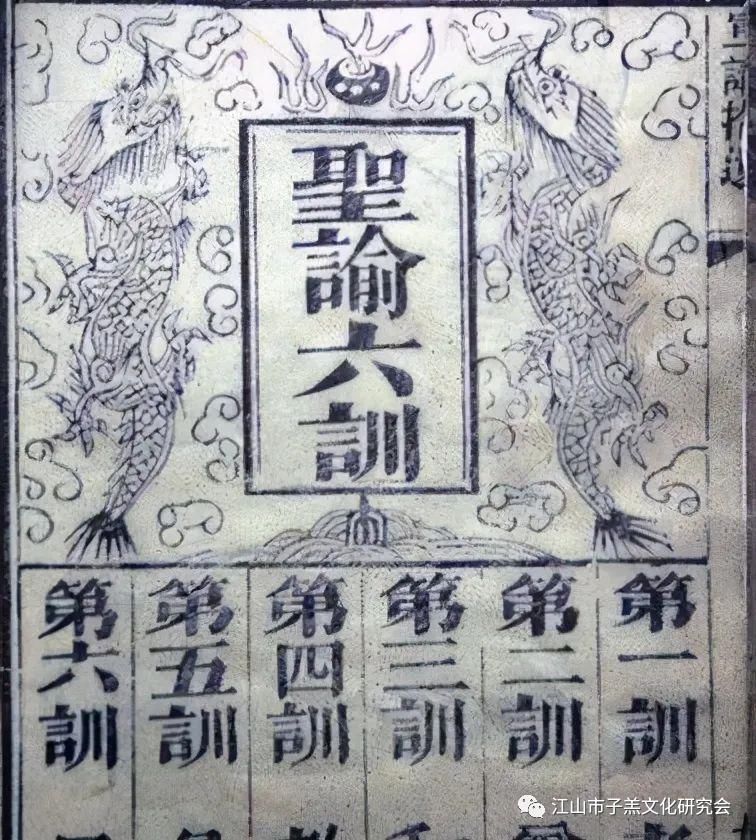 聖諭六訓
第一訓
第二訓
第三訓
第四訓
第五訓
第六訓
江山市子羔文化研究会